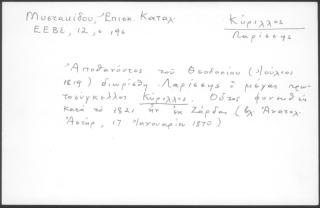 Μυστακίδου, Ἐπισκ. Καταλ.
Κύριλλος
ΕΕΒΣ, 12,
Λαρίσσης
Ἀποθανόντος τοῦ Θεοδοσίου (Ἰούλιος
1819) διωρίσθη Λαρίσσης ὁ μέγας πρω-
τοσύγκελλος Κύριλλος. Οὗτος
κατὰ τὸ 1821 ἦν ἐν (βλ. Ἀνατολ.
Ἀστήρ, 17 Ἰανουαρίου 1870)